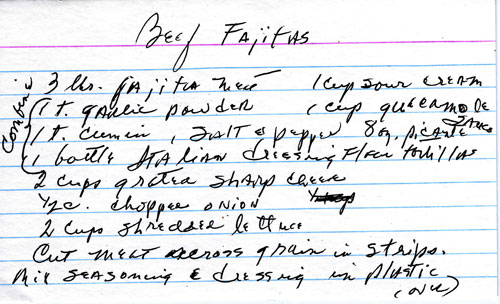 Beef Fajitas
Combine
3 lbs. fajita meat 1 cup sour cream
1 t. garlic powder 1 cup guacamole
1 t. cumin, salt & pepper 8 oz. picante sauce
1 bottle Italian dressing Flour tortillas
2 cups grated sharp cheese
1/2 c. chopped onion
2 cups shredded lettuce
Cut meat across grain in strips.
Mix seasoning & dressing in plastic
(over)